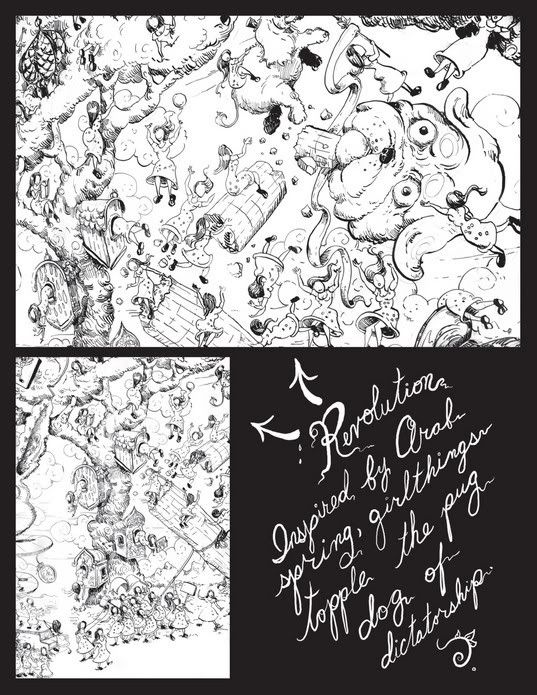 : Revolution
Inspired by Arab
spring, girlthings
topple the pug
dog of
dictatorship.